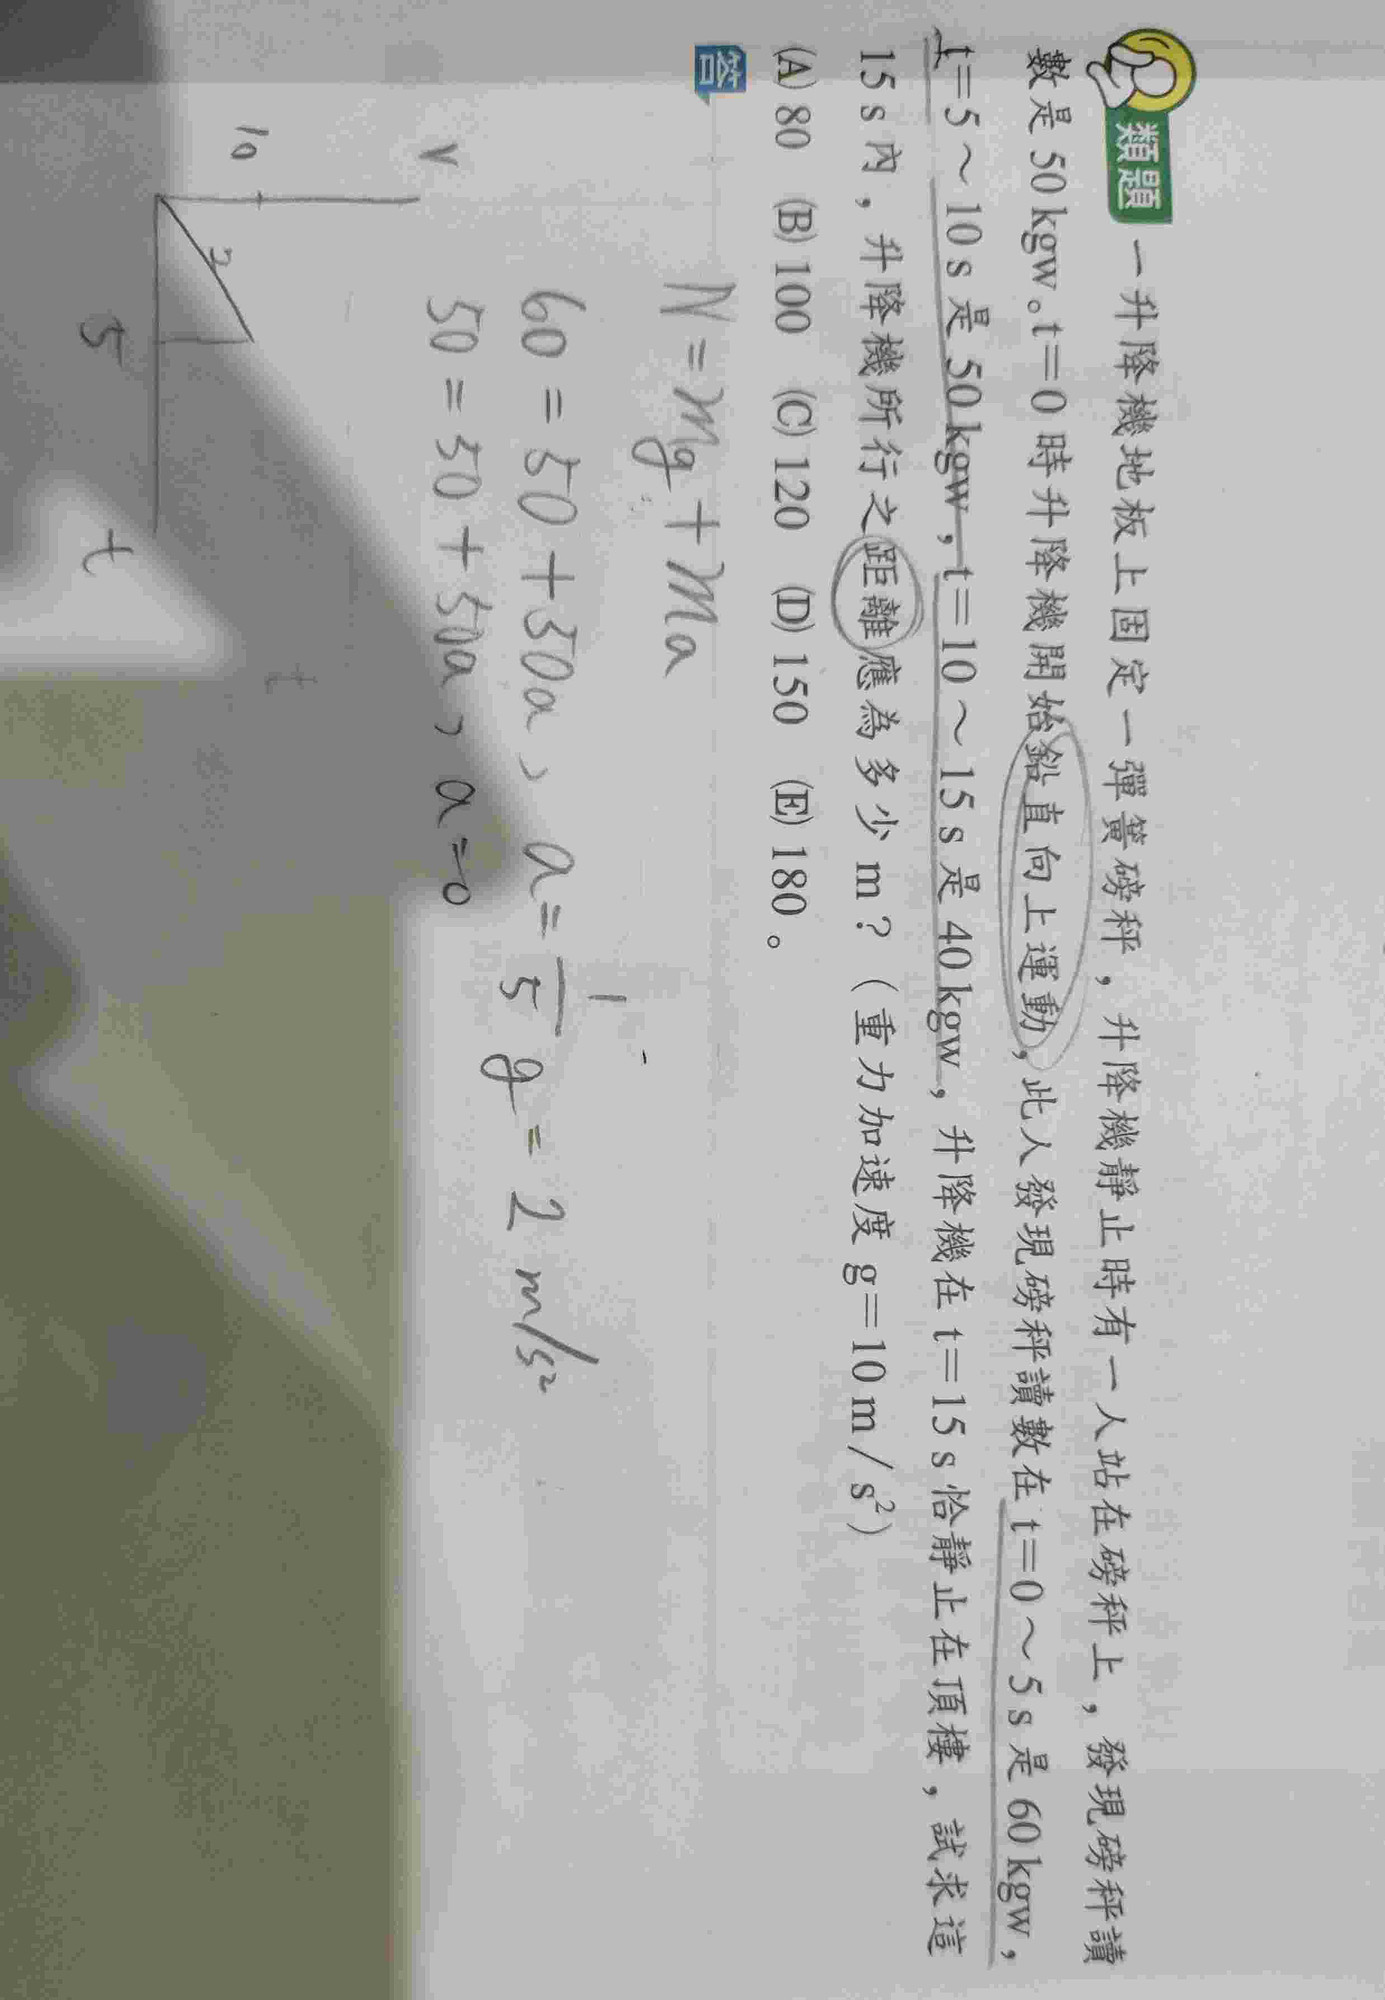 類題 一升降機地板上固定一彈簧磅秤，升降機靜止時有一人站在磅秤上，發現磅秤讀
數是 50 kgw。t＝0 時升降機開始鉛直向上運動，此人發現磅秤讀數在 t＝0～5 s 是 60 kgw，
t＝5～10 s 是 50 kgw，t＝10～15 s 是 40 kgw，升降機在 t＝15 s 恰靜止在頂樓，試求這
15 s 內，升降機所行之距離應為多少 m？（重力加速度 g＝10 m／s²）
(A) 80 (B) 100 (C) 120 (D) 150 (E) 180。
答
N = mg + ma
60 = 50 + 50a, a = 1/5 g = 2 m/s²
50 = 50 + 50a, a = 0
v
10
2
5
t
t